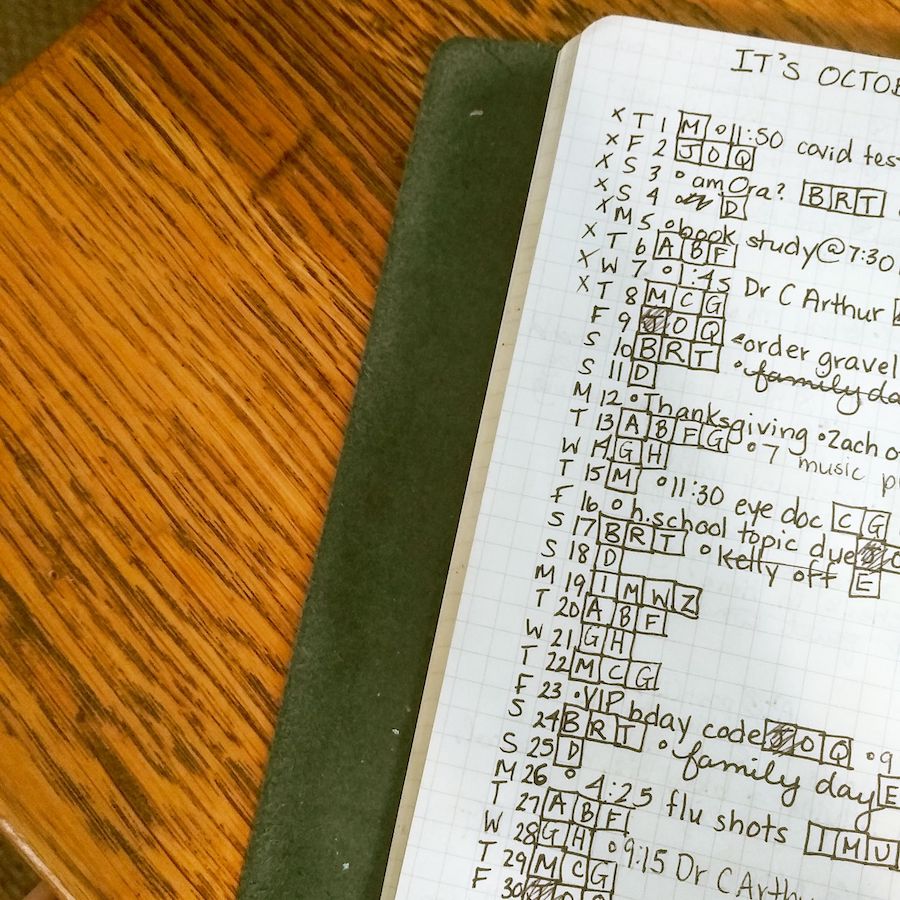 IT'S OCTOB
x T 1 M 11:50 covid tes
x F 2 J O Q
x S 3 am Ora? B R T
x S 4 D
x M 5 book study@7:30
x T 6 A B F
x W 7 1:45 Dr C Arthur
x T 8 M C G
F 9 O Q order gravel
S 10 B R T family da
S 11 D
M 12 Thanksgiving Zach o
T 13 A B F G 7 music p
W 14 G H
T 15 M 11:30 eye doc C G
F 16 h.school topic due
S 17 B R T Kelly off E
S 18 D
M 19 I M W Z
T 20 A B F
W 21 G H
T 22 M C G
F 23 VIP bday code O Q 9
S 24 B R T family day E
S 25 D
M 26 4:25 flu shots I M U
T 27 A B F
W 28 G H 9:15 Dr C Arthu
T 29 M C G
F 30 O Q